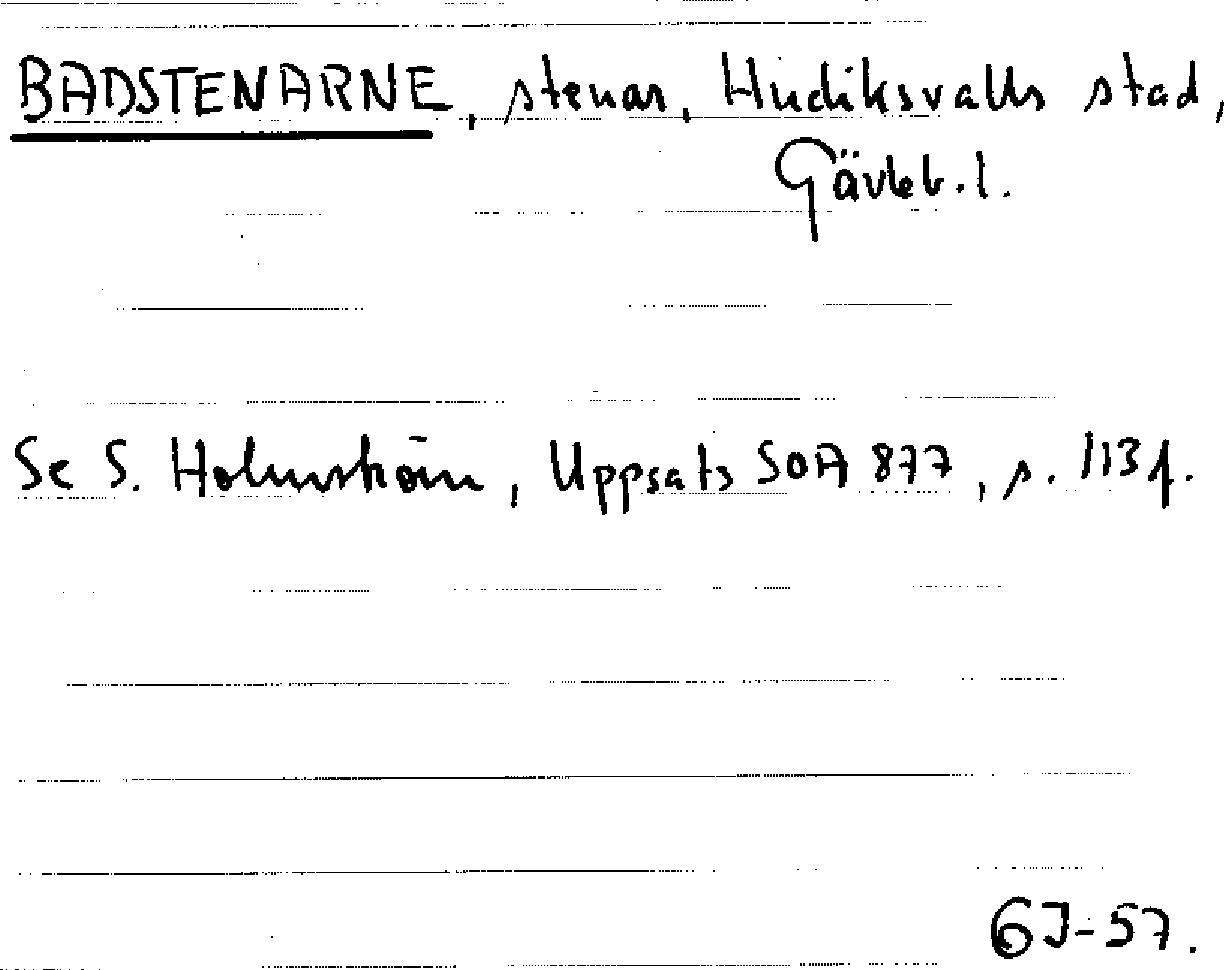 BADSTENARNE, stenar, Hudiksvalls stad,
Gävleb. l.
Se S. Holmström, Uppsats SOA 877, s. 113 f.
GJ-57.